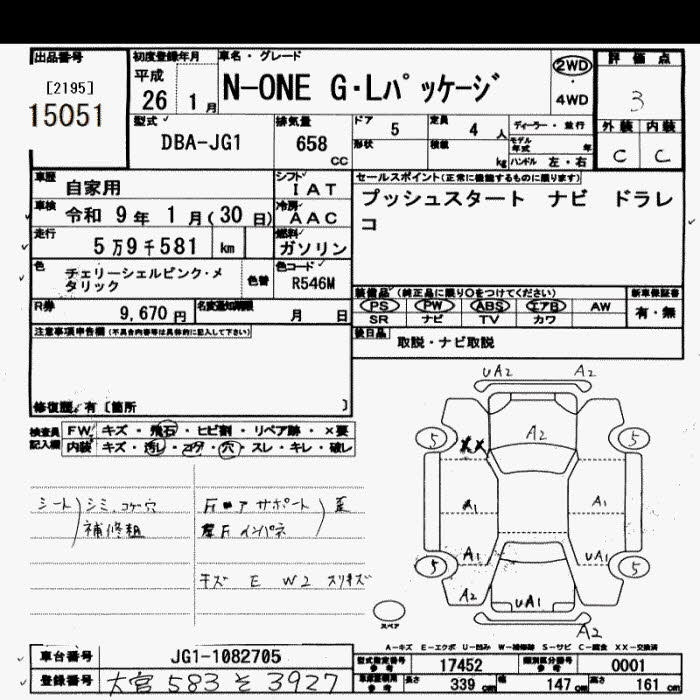 出品番号
[2195]
15051
初度登録年月
平成
26 1月
車名・グレード
N-ONE G・Lパッケージ
2WD
・
4WD
評価点
3
外装 内装
C C
型式
DBA-JG1
排気量
658
CC
ドア
5
形状
定員
4 人
積載
kg
ディーラー・並行
モデル年式 年
ハンドル 左・右
車歴
自家用
車検
令和 9年 1月(30日)
走行
5万9千581 km
シフト
IAT
冷房
AAC
燃料
ガソリン
セールスポイント(正常に機能するものに限ります)
プッシュスタート ナビ ドラレ
コ
色
チェリーシェルピンク・メ
タリック
色替
色コード
R546M
R券
9,670 円
名変通知期限
月 日
装備品 (純正品に限り○をつけてください)
PS PW ABS エアB AW
SR ナビ TV カワ
新車保証書
有・無
後日品
取説・ナビ取説
注意事項申告欄(不具合内容等は具体的に記入して下さい)
修復歴 有〔箇所 〕
検査員
記入欄
FW キズ・飛石・ヒビ割・リペア跡・×要
内装 キズ・汚レ・コゲ・穴・スレ・キレ・破レ
シート シミ、コゲ穴
補修粗
Fロアサポート
インパネ
歪
キズ E W2 スリキズ
UA2 A2
5 XX A2 5
A1 A1
5 A1 UA1 5
A2 UA1
A2
スペア
A-キズ E-エクボ U-凹み W-補修跡 S-サビ C-腐食 XX-交換済
車台番号
JG1-1082705
登録番号
大宮 583 そ 3927
型式指定番号
参考
17452
類別区分番号
参考
0001
車庫証明用
参考
長さ
339 cm
幅
147 cm
高さ
161 cm